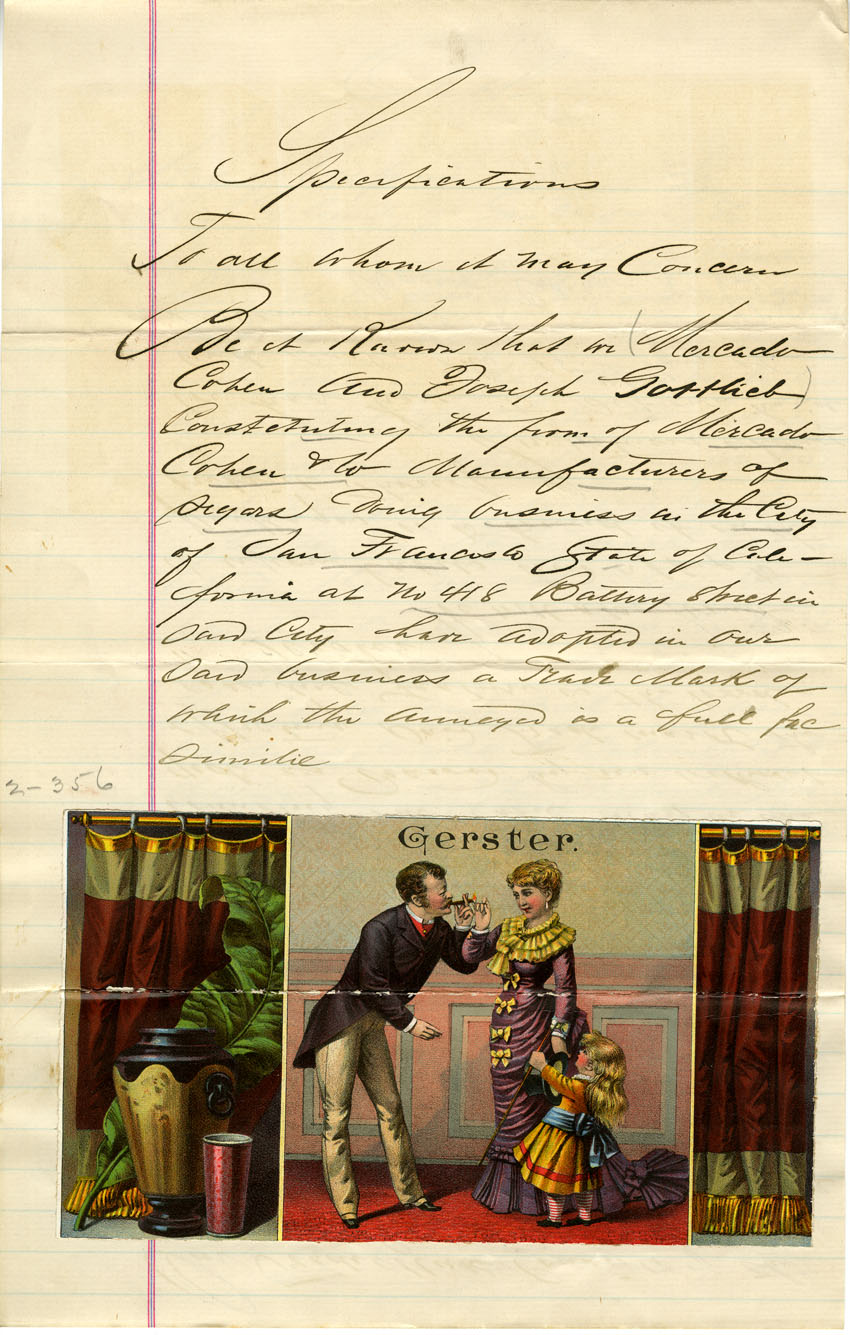 Specifications
To all whom it may Concern
Be it Known that we (Mercado
Cohen and Joseph Gottlieb)
Constetuting the firm of Mercado
Cohen & Co Manufacturers of
segars doing business in the City
of San Francisco State of Cali-
fornia at No 418 Battery Street in
said City have adopted in our
said business a Trade Mark of
which the annexed is a full fac
similie
2-356
Gerster.